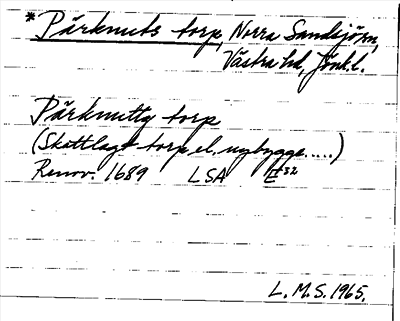 *Pärknuts torp, Norra Sandsjö sn,
Västra hd, Jönk l.
Pärknutty torp
(Skattlagt torp el. nybygge.....)
Renov. 1689 LSA E 32
L.M.S. 1965.